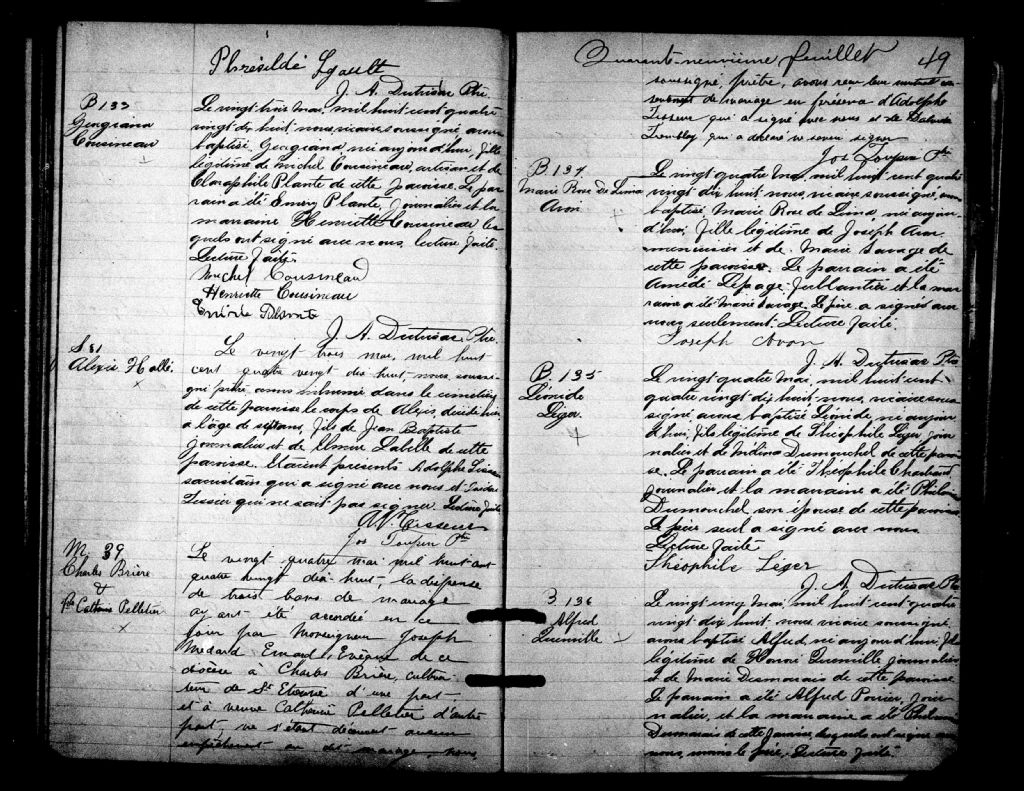 Phrésildé Legault
J. A. Dutrisac Ptre
B 133
Georgiana
Cousineau
Le vingt trois mai, mil huit cent quatre
vingt dix huit nous vicaire soussigné avons
baptisé, Georgiana, née aujourd'hui, fille
légitime de Michel Cousineau, artisan et de
Cléophile Plante de cette paroisse. Le par
rain a été Emery Plante, journalier et la
marraine Henriette Cousineau les
quels ont signé avec nous, lecture faite.
Lecture faite.
Michel Cousineau
Henriette Cousineau
J. A. Dutrisac Ptre
S 81
Alexis Hallé
Le vingt trois mai, mil huit
cent quatre vingt dix huit, nous, soussi-
gné prêtre avons inhumé dans le cimetière
de cette paroisse le corps de Alexis, décédé
a l'âge de sept ans, fils de Jean Baptiste
journalier et de Labelle de cette
paroisse. Etaient présents Adolphe Tisseur
sacristain qui a signé avec nous et
Tessier qui ne sait pas signer. Lecture faite
A Tisseur
Jos Toupin Ptre
M. 39
Charles Brière
&
Catherine Pelletier
Le vingt quatre mai mil huit cent
quatre vingt dix huit, la dispense
de trois bans de mariage
ayant été accordée en ce
jour par Monseigneur Joseph
Médard Emard, Evêque de ce
diocèse à Charles Brière, cultiva
teur de St Etienne d'une part
et à veuve Catherine Pelletier d'autre
part, ne s'étant découvert aucun
empêchement au dit mariage nous
Quarante-neuvième feuillet 49
soussigné, prêtre, avons reçu leur mutuel con
sentement de mariage en présence d'Adolphe
Tisseur qui a signé avec nous et de
Trembley qui a déclaré ne savoir signer
Jos Toupin Ptre
B. 134
Marie Rose de Lima
Avon
Le vingt quatre mai, mil huit cent quatre
vingt dix huit, nous, vicaire soussigné, avons
baptisé Marie Rose de Lima, née aujour
d'hui, fille légitime de Joseph Avon
menuisier et de Marie Sauvage de
cette paroisse. Le parrain a été
Amédé Lepage, ferblantier et la mar
raine a été Marie Sauvage. Le père a signé avec
nous seulement. Lecture faite.
Joseph Avon
J. A. Dutrisac Ptre
B. 135
Léonide
Léger
Le vingt quatre mai, mil huit cent
quatre vingt dix huit, nous, vicaire sous
signé avons baptisé Léonide, né aujour
d'hui, fils légitime de Théophile Léger jour
nalier et de Mélina Dumouchel de cette parois
se. Le parrain a été Théophile Charlrand
journalier et la marraine a été
Dumouchel, son épouse de cette paroisse
Le père seul a signé avec nous.
Lecture faite
Théophile Léger
J. A. Dutrisac Ptre
B. 136
Alfred
Quenville
Le vingt cinq mai, mil huit cent quatre
vingt dix huit, nous, vicaire soussigné,
avons baptisé Alfred, né aujourd'hui, fils
légitime de Quenville journalier
et de Marie Desmarais de cette paroisse
Le parrain a été Alfred Poirier, jour
nalier, et la marraine a été
Desmarais de cette paroisse, lesquels ont signé avec
nous, le père. Lecture faite.